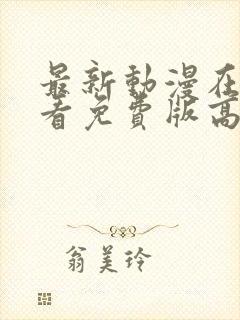 最新動漫在
看免費版高
翁美玲